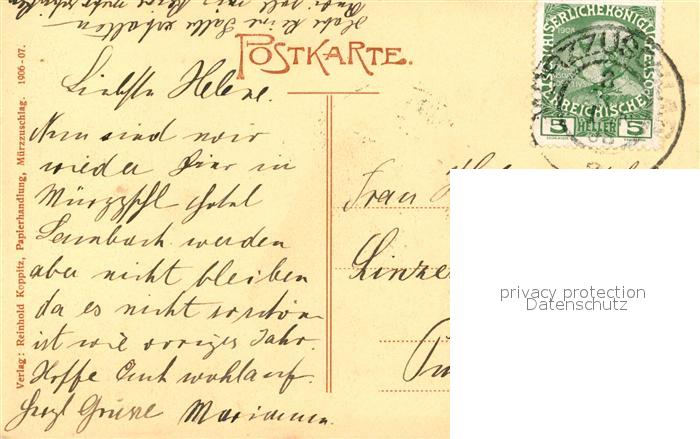 Habe keine Salbe erhalten
POSTKARTE.
Liebste Helene.
Nun sind wir
wieder hier in
Mürzzschl Hotel
Lambach werden
aber nicht bleiben
da es nicht so schön
ist wie voriges Jahr.
Hoffe Euch wohlauf.
Herzl Grüsse Marianna
Verlag: Reinhold Koppitz, Papierhandlung, Mürzzuschlag. 1906-07.
Frau
Linze
KAISERLICHE KÖNIGLICHE
1908
REICHISCHE
5 HELLER 5
MÜRZZUSCHLAG
privacy protection
Datenschutz